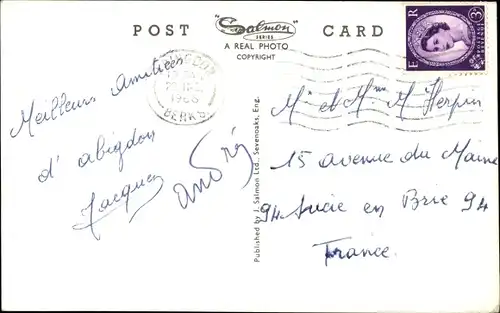 POST CARD
"Salmon"
SERIES
A REAL PHOTO
COPYRIGHT
BERKS
Meilleurs amitiées
d'abigdon
Jacques
André
Published by J. Salmon Ltd., Sevenoaks, Eng.
Mr et Mme M Herpin
15 avenue du Maine
94 Sucie en Brie 94
France.
E R